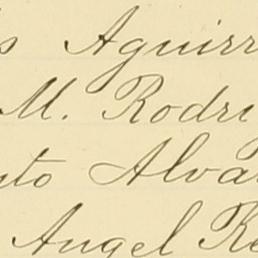 s Aguirr
M. Rodri
nto Alva
Angel Re